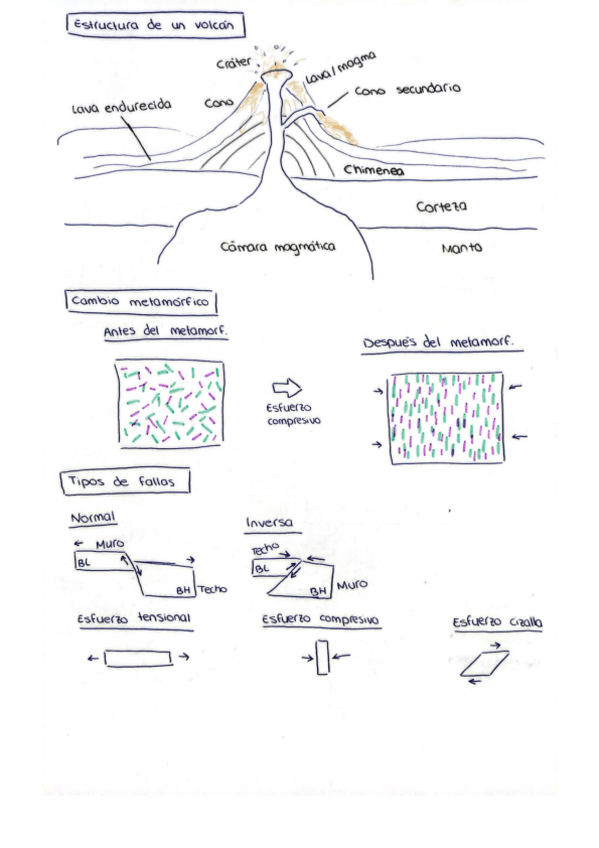 Estructura de un volcán
Cráter
Lava/magma
Cono
Cono secundario
Lava endurecida
Chimenea
Corteza
Cámara magmática
Manto
Cambio metamórfico
Antes del metamorf.
Después del metamorf.
Esfuerzo
compresivo
Tipos de fallas
Normal
Inversa
Muro
BL
BH
Techo
Techo
BL
BH
Muro
Esfuerzo tensional
Esfuerzo compresivo
Esfuerzo cizalla